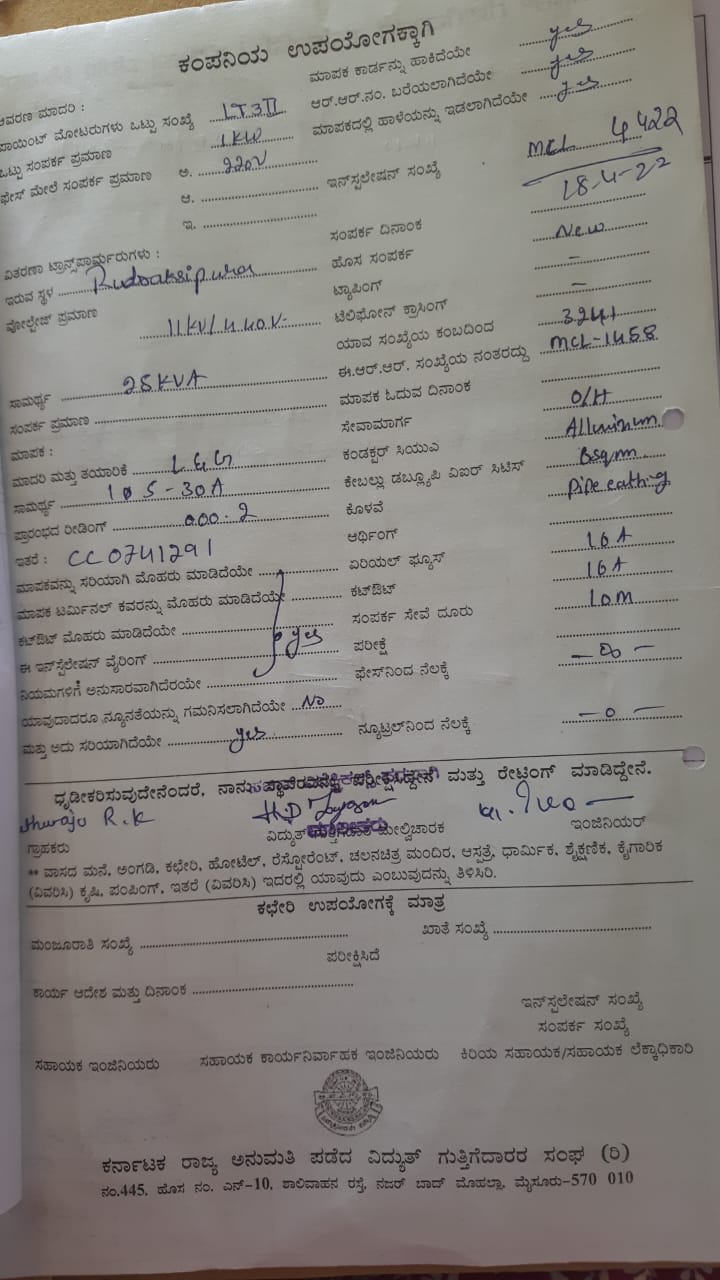 ಕಂಪನಿಯ ಉಪಯೋಗಕ್ಕಾಗಿ
ಆವರಣ ಮಾದರಿ :
ಮಾಪಕ ಕಾರ್ಡನ್ನು ಹಾಕಿದೆಯೇ yes
ಪಾಯಿಂಟ್ ಮೋಟರುಗಳು ಒಟ್ಟು ಸಂಖ್ಯೆ LT3II
ಆರ್.ಆರ್.ನಂ. ಬರೆಯಲಾಗಿದೆಯೇ yes
ಒಟ್ಟು ಸಂಪರ್ಕ ಪ್ರಮಾಣ 1KW
ಮಾಪಕದಲ್ಲಿ ಹಾಳೆಯನ್ನು ಇಡಲಾಗಿದೆಯೇ yes
ಫೇಸ್ ಮೇಲೆ ಸಂಪರ್ಕ ಪ್ರಮಾಣ ಅ. 220V
ಆ.
ಇನ್‌ಸ್ಪಲೇಷನ್ ಸಂಖ್ಯೆ MCL 4422
ಇ.
28-4-22
ಸಂಪರ್ಕ ದಿನಾಂಕ
ವಿತರಣಾ ಟ್ರಾನ್ಸ್‌ಪಾರ್ಮರುಗಳು :
ಹೊಸ ಸಂಪರ್ಕ New
ಇರುವ ಸ್ಥಳ
ಟ್ಯಾಪಿಂಗ್ –
ವೋಲ್ಟೇಜ್ ಪ್ರಮಾಣ 11KV/440V-
ಟೆಲಿಫೋನ್ ಕ್ರಾಸಿಂಗ್ –
ಯಾವ ಸಂಖ್ಯೆಯ ಕಂಬದಿಂದ 3241
ಸಾಮರ್ಥ್ಯ 25KVA
ಈ.ಆರ್.ಆರ್. ಸಂಖ್ಯೆಯ ನಂತರದ್ದು MCL-1458
ಸಂಪರ್ಕ ಪ್ರಮಾಣ
ಮಾಪಕ ಓದುವ ದಿನಾಂಕ
ಮಾಪಕ :
ಸೇವಾಮಾರ್ಗ O/H
ಮಾದರಿ ಮತ್ತು ತಯಾರಿಕೆ L&G
ಕಂಡಕ್ಟರ್ ಸಿಯುಎ Alluminum
ಸಾಮರ್ಥ್ಯ
ಕೇಬಲ್ಲು ಡಬ್ಲ್ಯೂಪಿ ವಿಐರ್ ಸಿಟಿಸ್
ಪ್ರಾರಂಭದ ರೀಡಿಂಗ್ 000.2
ಕೊಳವೆ Pipe eathing
ಇತರೆ : CC0741291
ಆರ್ಥಿಂಗ್
ಮಾಪಕವನ್ನು ಸರಿಯಾಗಿ ಮೊಹರು ಮಾಡಿದೆಯೇ
ಏರಿಯಲ್ ಫ್ಯೂಸ್ 16A
ಮಾಪಕ ಟರ್ಮಿನಲ್ ಕವರನ್ನು ಮೊಹರು ಮಾಡಿದೆಯೇ
ಕಟ್‌ಔಟ್ 16A
ಕಟ್‌ಔಟ್ ಮೊಹರು ಮಾಡಿದೆಯೇ
ಸಂಪರ್ಕ ಸೇವೆ ದೂರು 10m
ಈ ಇನ್‌ಸ್ಪಲೇಷನ್ ವೈರಿಂಗ್ yes
ಪರೀಕ್ಷೆ
ನಿಯಮಗಳಿಗೆ ಅನುಸಾರವಾಗಿದೆರಯೇ
ಫೇಸ್‌ನಿಂದ ನೆಲಕ್ಕೆ
ಯಾವುದಾದರೂ ನ್ಯೂನತೆಯನ್ನು ಗಮನಿಸಲಾಗಿದೆಯೇ No
ಮತ್ತು ಅದು ಸರಿಯಾಗಿದೆಯೇ yes
ನ್ಯೂಟ್ರಲ್‌ನಿಂದ ನೆಲಕ್ಕೆ –0–
ಧೃಡೀಕರಿಸುವುದೇನೆಂದರೆ, ನಾನು ಪರೀಕ್ಷಿಸಿದ್ದೇನೆ ಮತ್ತು ರೇಟಿಂಗ್ ಮಾಡಿದ್ದೇನೆ.
R.K
ಗ್ರಾಹಕರು ವಿದ್ಯುತ್ ಮೇಲ್ವಿಚಾರಕ ಇಂಜಿನಿಯರ್
** ವಾಸದ ಮನೆ, ಅಂಗಡಿ, ಕಛೇರಿ, ಹೋಟೆಲ್, ರೆಸ್ಟೋರೆಂಟ್, ಚಲನಚಿತ್ರ ಮಂದಿರ, ಆಸ್ಪತ್ರೆ, ಧಾರ್ಮಿಕ, ಶೈಕ್ಷಣಿಕ, ಕೈಗಾರಿಕ
(ವಿವರಿಸಿ) ಕೃಷಿ, ಪಂಪಿಂಗ್, ಇತರೆ (ವಿವರಿಸಿ) ಇದರಲ್ಲಿ ಯಾವುದು ಎಂಬುವುದನ್ನು ತಿಳಿಸಿರಿ.
ಕಛೇರಿ ಉಪಯೋಗಕ್ಕೆ ಮಾತ್ರ
ಮಂಜೂರಾತಿ ಸಂಖ್ಯೆ
ಖಾತೆ ಸಂಖ್ಯೆ
ಪರೀಕ್ಷಿಸಿದೆ
ಕಾರ್ಯ ಆದೇಶ ಮತ್ತು ದಿನಾಂಕ
ಇನ್‌ಸ್ಪಲೇಷನ್ ಸಂಖ್ಯೆ
ಸಂಪರ್ಕ ಸಂಖ್ಯೆ
ಸಹಾಯಕ ಇಂಜಿನಿಯರು ಸಹಾಯಕ ಕಾರ್ಯನಿರ್ವಾಹಕ ಇಂಜಿನಿಯರು ಕಿರಿಯ ಸಹಾಯಕ/ಸಹಾಯಕ ಲೆಕ್ಕಾಧಿಕಾರಿ
ಕರ್ನಾಟಕ ರಾಜ್ಯ ಅನುಮತಿ ಪಡೆದ ವಿದ್ಯುತ್ ಗುತ್ತಿಗೆದಾರರ ಸಂಘ (ರಿ)
ನಂ.445, ಹೊಸ ನಂ. ಎನ್-10, ಶಾಲಿವಾಹನ ರಸ್ತೆ, ನಜರ್ ಬಾದ್ ಮೊಹಲ್ಲಾ, ಮೈಸೂರು-570 010